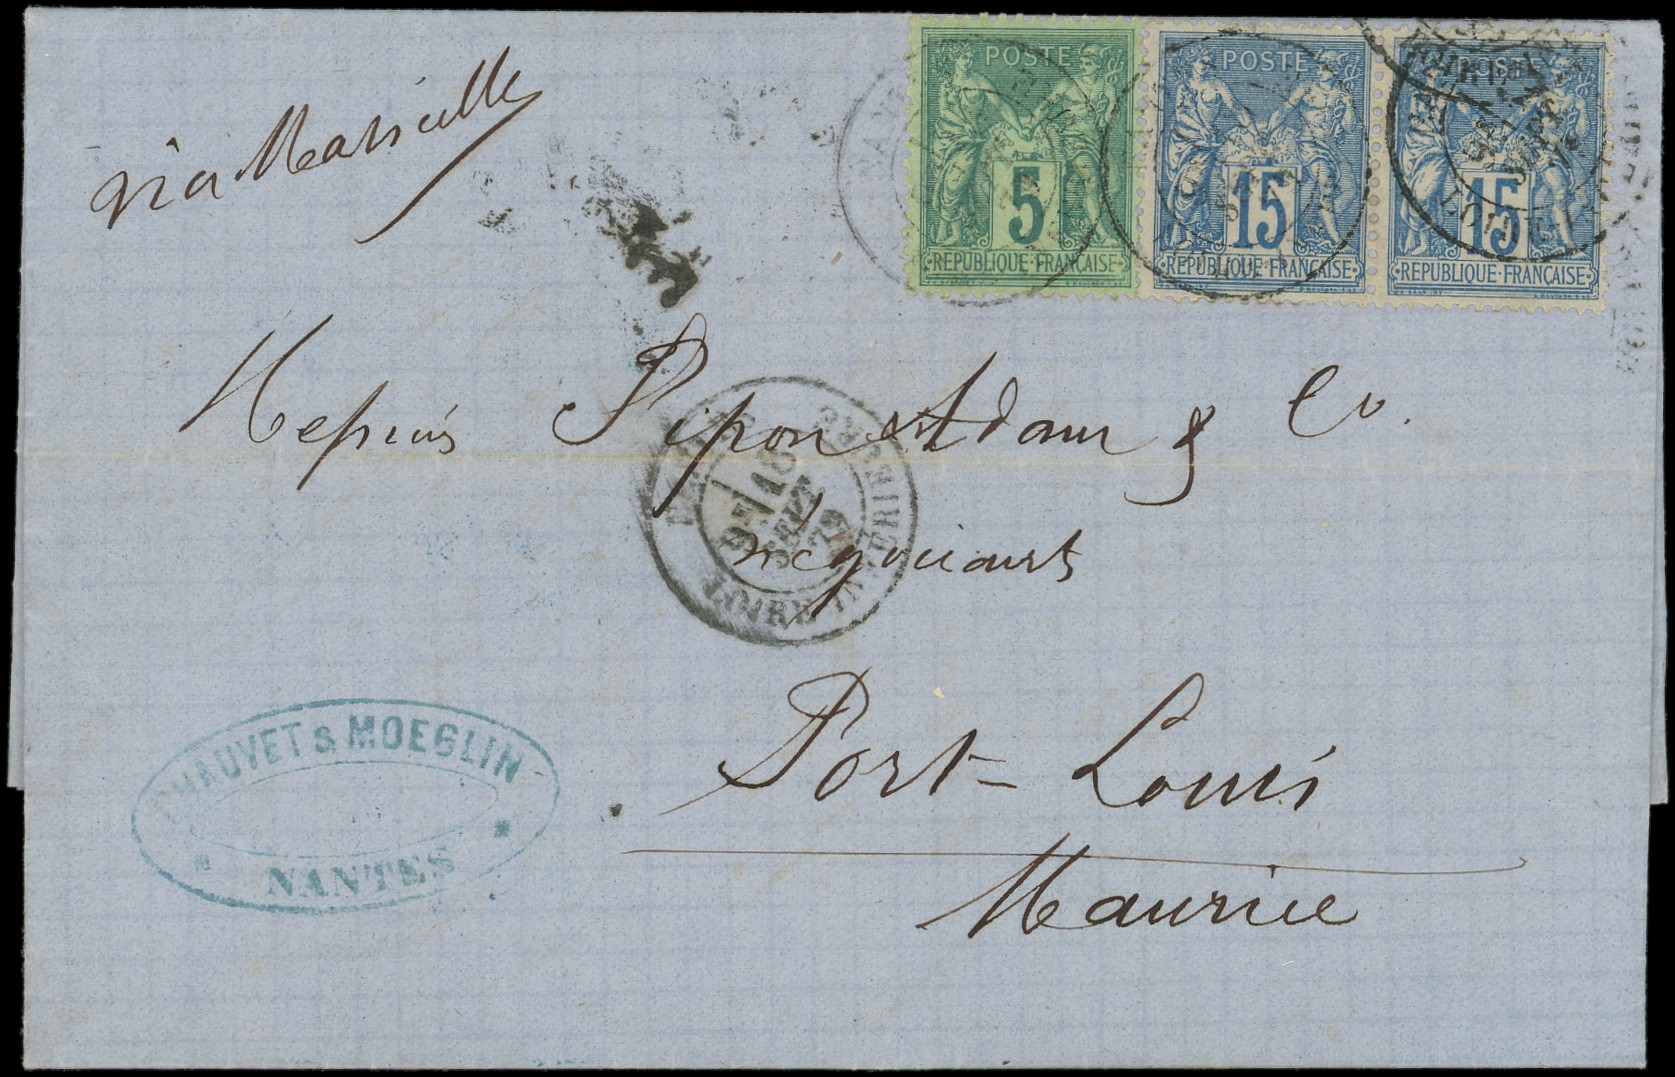 via Marseille
POSTE
5
REPUBLIQUE FRANÇAISE
POSTE
15
REPUBLIQUE FRANÇAISE
POSTE
15
REPUBLIQUE FRANÇAISE
Messieurs Pipon Adam & Co.
négociants
10
SEPT
79
LOIRE INFERIEURE
Port-Louis
Maurice
CHAUVET & MOEGLIN
* NANTES *